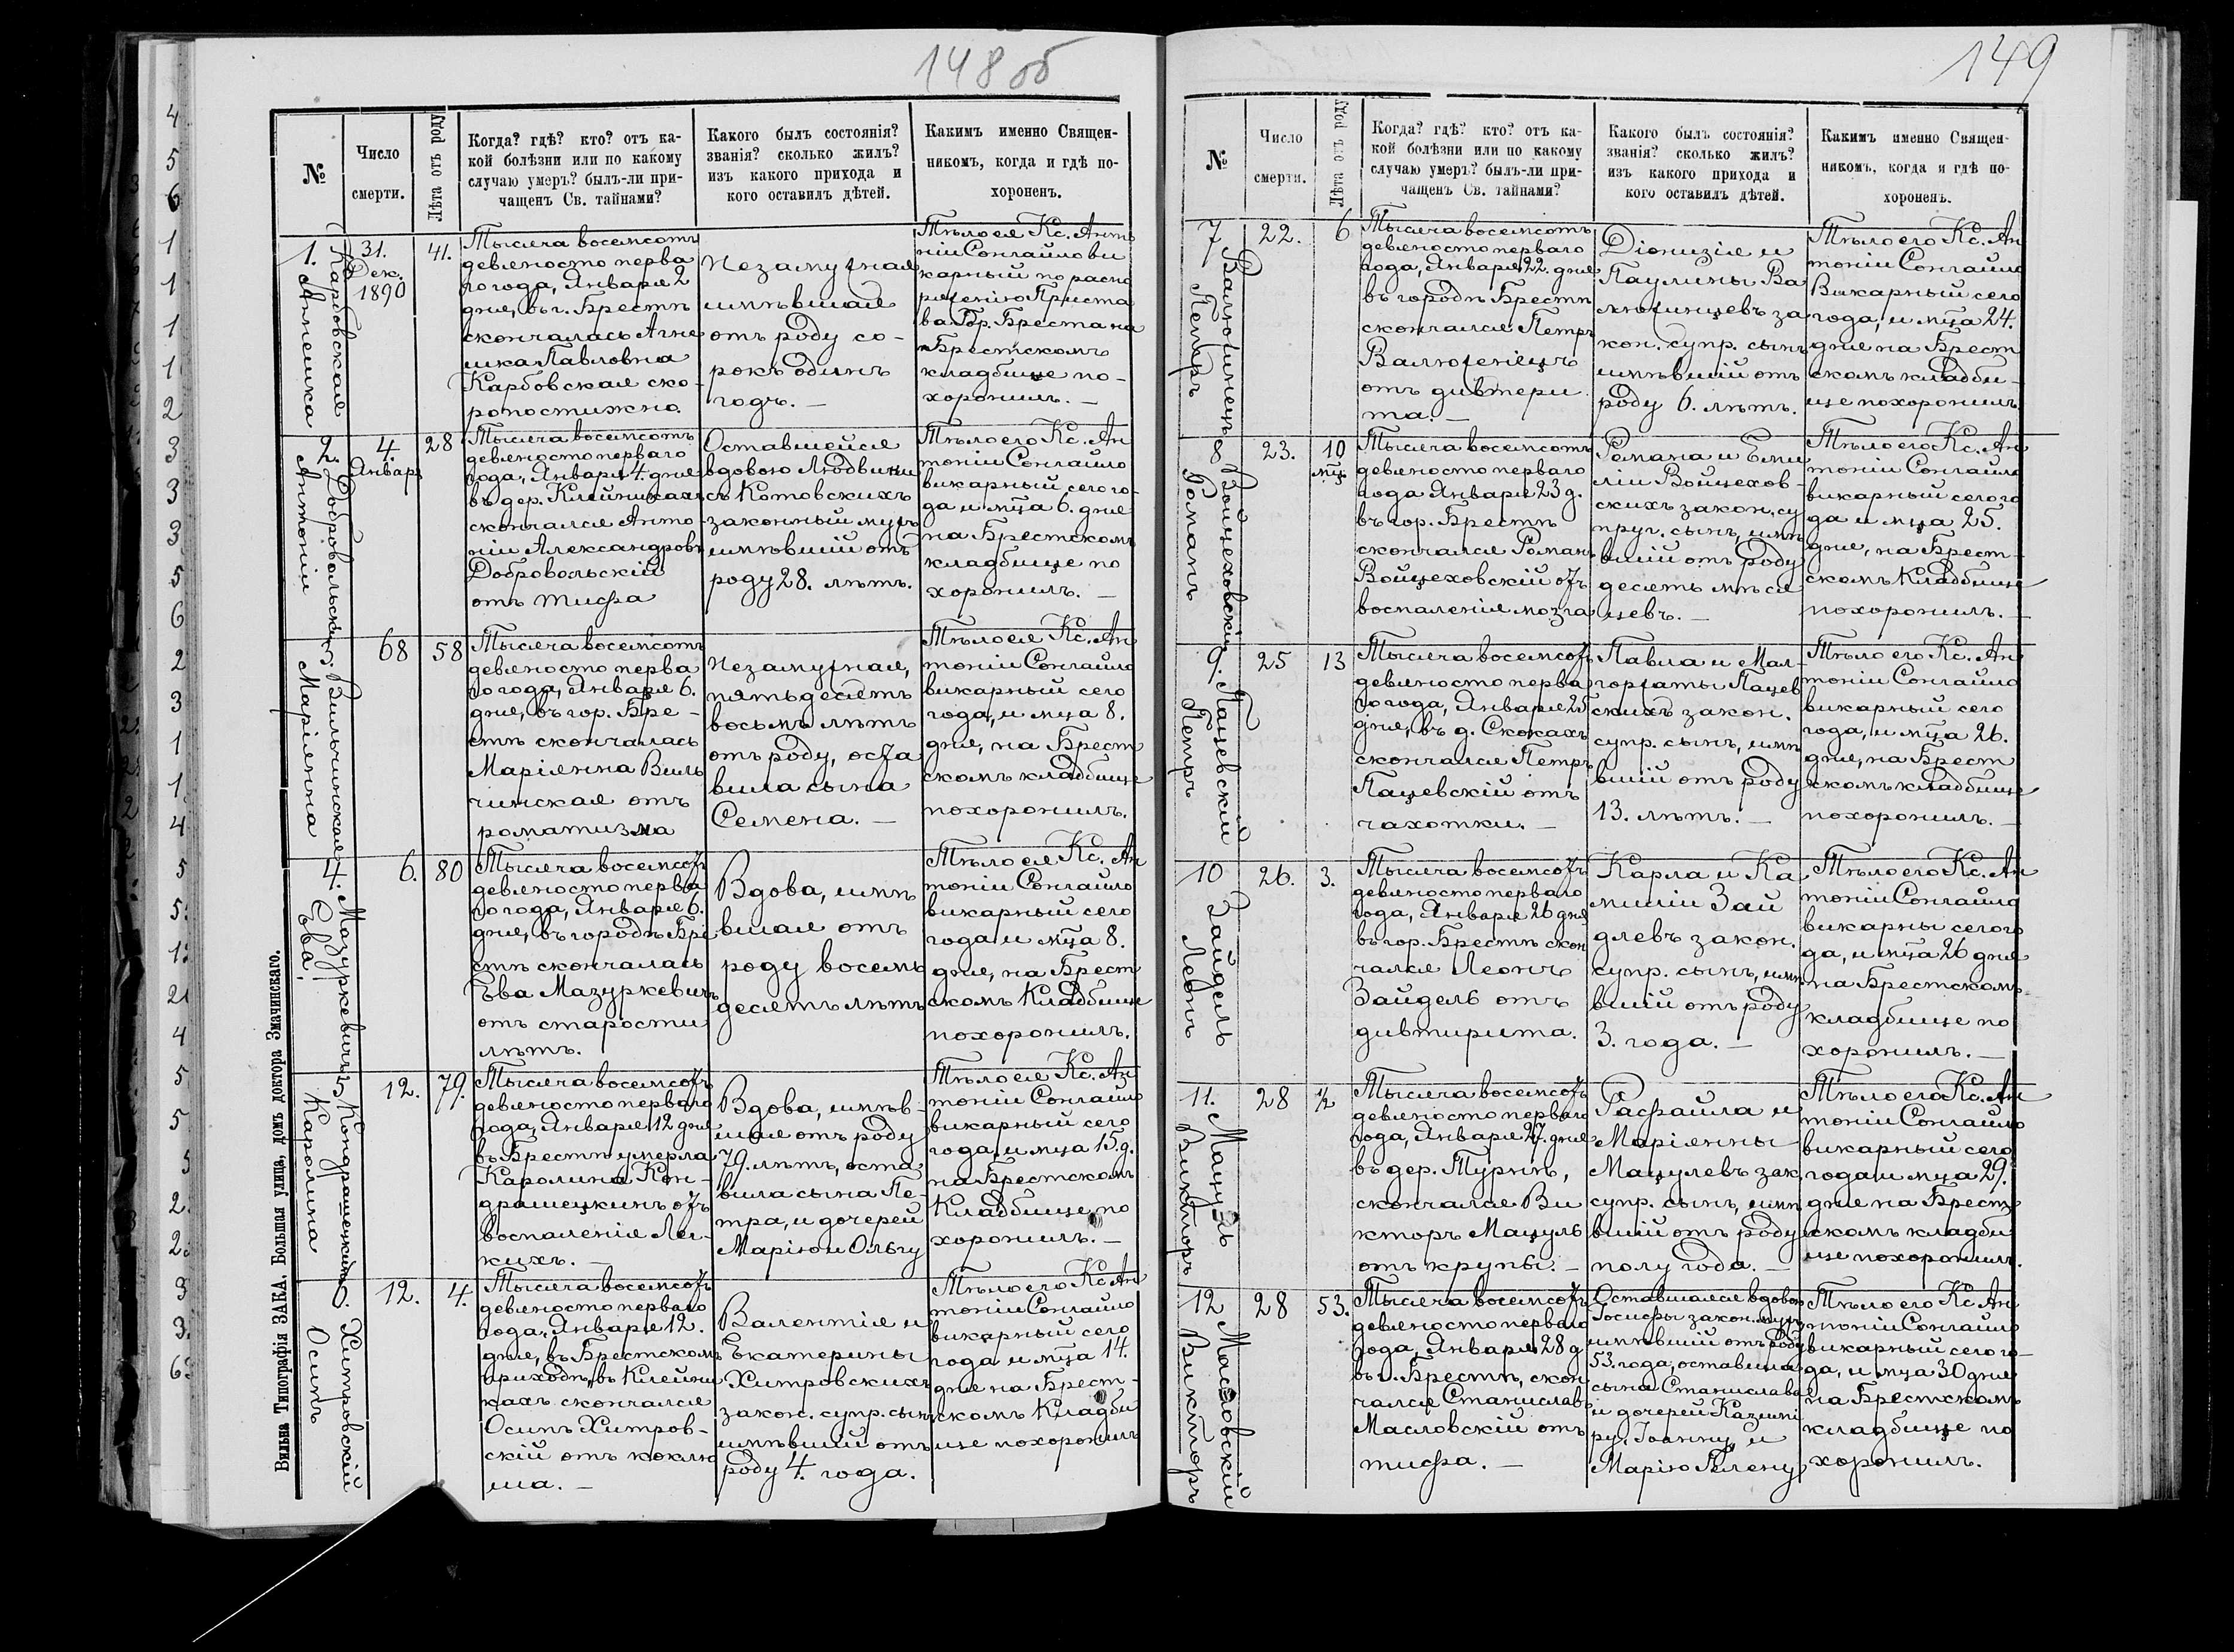 148 об
№
Число
смерти.
Лѣта отъ роду
Когда? гдѣ? кто? отъ ка-
кой болѣзни или по какому
случаю умеръ? былъ-ли при-
чащенъ Св. тайнами?
Какого былъ состоянія?
званія? сколько жилъ?
изъ какого прихода и
кого оставилъ дѣтей.
Какимъ именно Священ-
никомъ, когда и гдѣ по-
хороненъ.
1.
Карбовская
Агнешка
31.
Дек.
1890
41.
Тысяча восемсотъ
девяносто перва
го года, Января 2
дня, въ г. Брестѣ
скончалась Агне
шка Павловна
Карбовская ско-
ропостижно.
Незамужная
имѣвшая
отъ роду со-
рокъ одинъ
годъ. —
Тѣло ея Кс. Анто
ній Сонгайло ви
карный по распо
ряженію Приста
ва Гр. Бреста на
Брестскомъ
кладбище по-
хоронилъ. —
2.
Добровольскій
Антоній
4.
Январ
28
Тысяча восемсотъ
девяносто перваго
года, Января 4. дня
въ дер. Клейникахъ
скончался Анто-
ній Александровъ
Добровольскій
отъ тифа
Оставшейся
вдовою Людвики
съ Котовскихъ
законный мужъ
имѣвшій отъ
роду 28. лѣтъ.
Тѣло его Кс. Ан
тоній Сонгайло
викарный сего го-
да и мца 6. дня
на Брестскомъ
кладбище по
хоронилъ. —
3.
Вильчинская
Маріянна
68
58
Тысяча восемсотъ
девяносто перва
го года, Января 6.
дня, въ гор. Бре-
стѣ скончалась
Маріянна Виль
чинская отъ
роматизма
Незамужная,
пятьдесятъ
восьмъ лѣтъ
отъ роду, оста
вила сына
Семена. —
Тѣло ея Кс. Ан
тоній Сонгайло
викарный сего
года, и мца 8.
дня, на Брест
скомъ кладбище
похоронилъ.
4.
Мазуркевичъ
Ева,
6.
80
Тысяча восемсотъ
девяносто перва
го года, Января 6.
дня, въ городѣ Бре
стѣ скончалась
Ева Мазуркевичъ
отъ старости
лѣтъ.
Вдова, имѣ
вшая отъ
роду восемь
десятъ лѣтъ
Тѣло ея Кс. Ан
тоній Сонгайло
викарный сего
года и мца 8.
дня, на Брест
скомъ Кладбище
похоронилъ.
5
Кондрашецкинъ
Каролина
12.
79.
Тысяча восемсотъ
девяносто перваго
года, Января 12 дня
въ Брестѣ умерла
Каролина Кон-
драшецкинъ отъ
воспаленія Лег-
кихъ. —
Вдова, имѣв-
шая отъ роду
79. лѣтъ, оста
вила сына Пе-
тра, и дочерей
Марію и Ольгу
Тѣло ея Кс. Ан
тоній Сонгайло
викарный сего
года и мца 15. д.
на Брестскомъ
Кладбище по
хоронилъ. —
6.
Хитровскій
Осипъ
12.
4.
Тысяча восемсотъ
девяносто перваго
года, Января 12.
дня, въ Брестскомъ
приходѣ, въ Клейни
кахъ скончался
Осипъ Хитров-
скій отъ коклю
ша. —
Валентія и
Екатерины
Хитровскихъ
закон. супр. сынъ
имѣвшій отъ
роду 4. года.
Тѣло его Кс Ан
тоній Сонгайло
викарный сего
года и мца 14.
дня на Брест-
скомъ Кладби
ще похоронилъ
Вильна Типографія ЗАКА. Большая улица, домъ доктора Змачинскаго.
149
№
Число
смерти.
Лѣта отъ роду
Когда? гдѣ? кто? отъ ка-
кой болѣзни или по какому
случаю умеръ? былъ-ли при-
чащенъ Св. тайнами?
Какого былъ состоянія?
званія? сколько жилъ?
изъ какого прихода и
кого оставилъ дѣтей.
Какимъ именно Священ-
никомъ, когда и гдѣ по-
хороненъ.
7
Валюжинецъ
Петръ
22.
6
Тысяча восемсотъ
девяносто перваго
года, Января 22. дня
въ городѣ Брестѣ
скончался Петръ
Валюженіецъ
отъ дивтери
та. —
Діонизія и
Паулины Ва
люжинцевъ за
кон. супр. сынъ
имѣвшій отъ
роду 6. лѣтъ.
Тѣло его Кс. Ан
тоній Сонгайло
Викарный сего
года, и мца 24.
дня на Брест
скомъ кладби-
ще похоронилъ.
8
Войцеховскій
Романъ
23.
10
мцъ
Тысяча восемсотъ
девяносто перваго
года Января 23 д.
въ гор. Брестѣ
скончался Романъ
Войцеховскій отъ
воспаленія мозга
Романа и Еми
ліи Войцехов-
скихъ закон. су
пруг. сынъ, имѣ
вшій отъ роду
десять мѣся
цевъ. —
Тѣло его Кс. Ан
тоній Сонгайло
викарный сего го
да и мца 25.
дня, на Брест-
скомъ Кладбище
похоронилъ. —
9.
Пацевскій
Петръ
25
13
Тысяча восемсотъ
девяносто перва
го года, Января 25
дня, въ д. Скокахъ
скончался Петръ
Пацевскій отъ
чахотки. —
Павла и Мал-
горжаты Пацев
скихъ закон.
супр. сынъ, имѣ
вшій отъ роду
13. лѣтъ. —
Тѣло его Кс. Ан
тоній Сонгайло
викарный сего
года, и мца 26.
дня, на Брест
скомъ кладбище
похоронилъ. —
10
Зайдель
Леонъ
26.
3.
Тысяча восемсотъ
девяносто перваго
года, Января 26 дня
въ гор. Брестѣ скон
чался Леонъ
Зайдель отъ
дивтирита.
Карла и Ка
миліи Зай
длевъ закон.
супр. сынъ, имѣ
вшій отъ роду
3. года. —
Тѣло его Кс. Ан
тоній Сонгайло
викарны сего го
да, и мца 26 дня
на Брестскомъ
кладбище по
хоронилъ. —
11.
Мацуль
Викторъ
28
½
Тысяча восемсотъ
девяносто перваго
года, Января 27. дня
въ дер. Турнѣ,
скончался Ви
кторъ Мацуль
отъ крупы. —
Рафаила и
Маріянны
Мацулевъ зак.
супр. сынъ, имѣ
вшій отъ роду
полугода. —
Тѣло его Кс. Ан
тоній Сонгайло
викарный сего
года и мца 29.
дня на Брест
скомъ кладби
ще похоронилъ.
12
Масловскій
Викторъ
28
53.
Тысяча восемсотъ
девяносто перваго
года, Января 28 д
въ г. Брестѣ, скон
чался Станиславъ
Масловскій отъ
тифа. —
Оставшаяся вдовою
Іосифы закон. мужъ
имѣвшій отъ роду
53. года, оставилъ
сына Станислава
и дочерей Казими
ру, Іоанну и
Марію Гелену
Тѣло его Кс. Ан
тоній Сонгайло
викарный сего го-
да, и мца 30 дня
на Брестскомъ
кладбище по
хоронилъ.